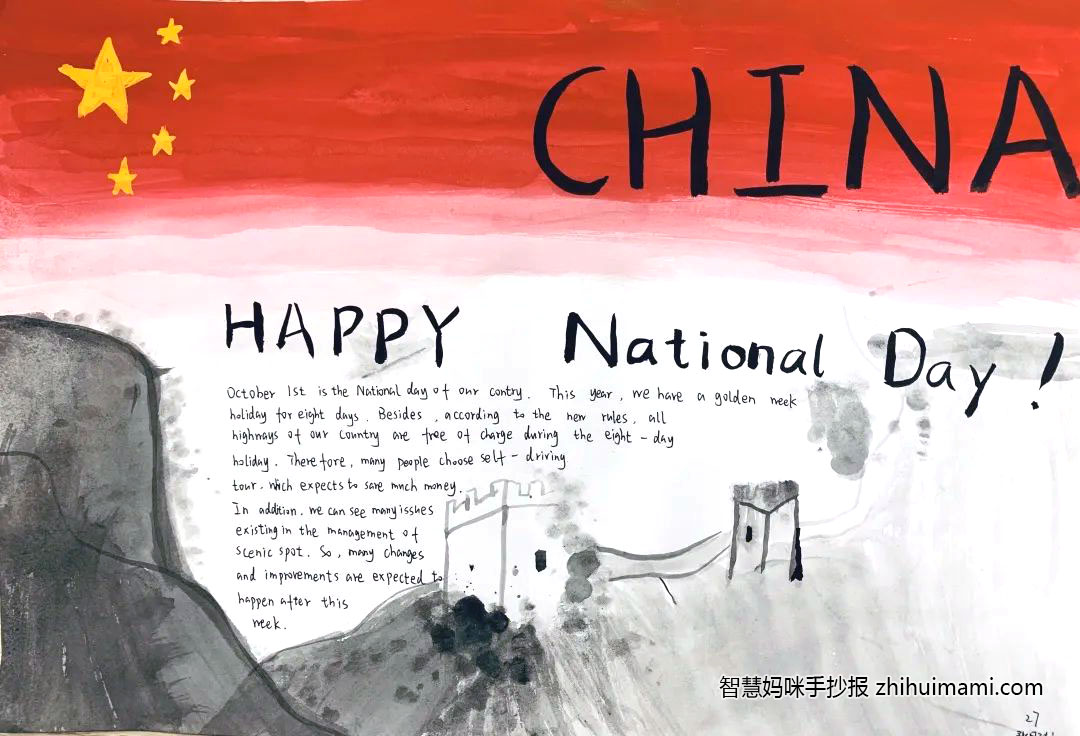 CHINA
HAPPY National Day!
October 1st is the National day of our contry. This year, we have a golden week
holiday for eight days. Besides, according to the new rules, all
highways of our country are free of charge during the eight-day
holiday. Therefore, many people choose self-driving
tour, which expects to save much money.
In addition, we can see many issues
existing in the management of
scenic spot. So, many changes
and improvements are expected to
happen after this
week.
智慧妈咪手抄报 zhihuimami.com
27